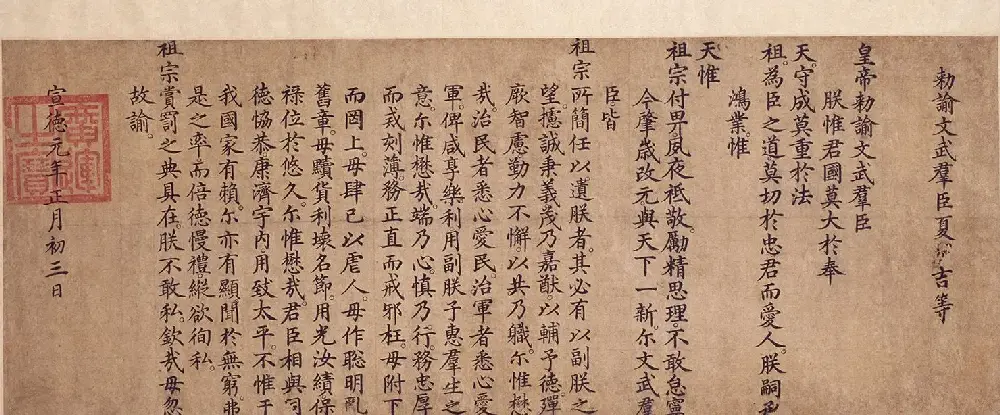 勅諭文武羣臣夏原吉等
皇帝勅諭文武羣臣
朕惟君國莫大於奉
天。守成莫重於法
祖。為臣之道莫切於忠君而愛人。朕嗣承
鴻業。惟
天惟
祖宗付畀夙夜祗敬勵精思理。不敢怠寧
今肇歲改元與天下一新尔文武羣
臣皆
祖宗所簡任以遺朕者。其必有以副朕之
望。攄誠秉義。茂乃嘉猷。以輔予德。殫
厥智慮勤力不懈。以共乃職。尔惟懋
哉。治民者悉心愛民。治軍者悉心愛
軍。俾咸享樂利。用副朕子惠羣生之
意。尔惟懋哉。端乃心。慎乃行。務忠厚
而戒刻薄。務正直而戒邪枉。毋附下
而罔上。毋肆己以虐人。毋作聰明亂
舊章。毋黷貨利壞名節。用光汝績保
祿位於悠久。尔惟懋哉。君臣相與同
德恊恭康濟宇內用致太平。不惟于
我國家有賴。尔亦有顯聞於無窮。弗
是之率而倍德慢禮。縱欲徇私。
祖宗賞罰之典具在。朕不敢私。欽哉毋忽
故諭。
宣德元年正月初三日
廣運之寶